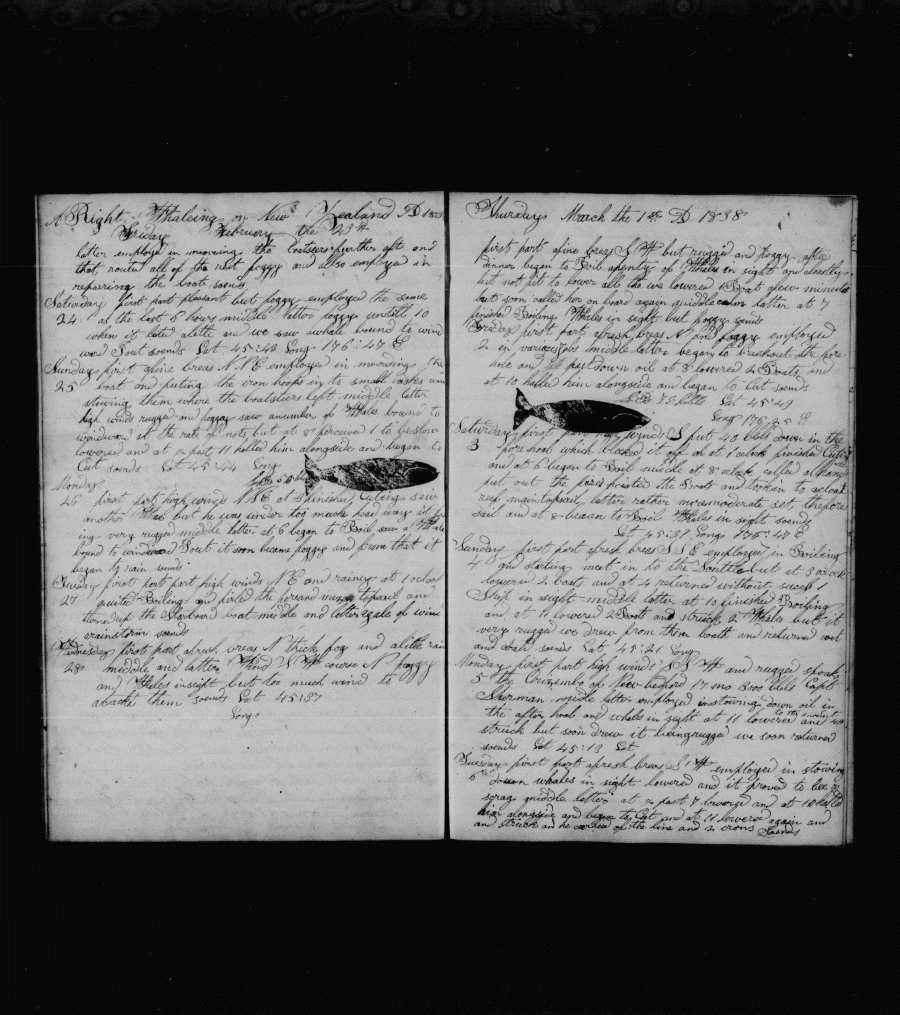 A Right Whaleing on New Zealand AD 1838
Friday February the 23th
latter employed in mooving the Coolers further aft and
that, routed all of the rest foggy and also employed in
repairing the boats soends
Saturday first part plesant but foggy employed the same
24 at the last 6 hours middle latter foggy untill 10
when it lited alitle and we saw awhale bound to wind
ward Sout soends Lat 45:48 Long 176:47 E
Sunday first part afine breas NNE employed in mending the
25 boat and puting the iron hoops in to small casks and
stowing them where the boatsters left middle latter
high winds rugged and foggy saw anumber of Whales bound to
windward at the rate of nots but at 8 perceived 1 to be slow
lowered and at ½ past 11 halled him alongside and began to
Cut soends Lat 45:44 Long
Monday
26 first part high winds NNE at 5 finished Cuting saw
another Whale but he was under too much head way it be
ing very rugged middle latter at 6 began to Boil saw a Whale
bound to windward Sout it soon became foggy and from that it
began to rain soends
Tuesday first part part high winds NE and rainey at 1 oclock
27 quited Boiling and furled the foresail and topsail and
turned up the Starbord boat middle and latter agale of wind
arainstorm soends
Wednesday first part afresh breas N thick fog and alitle rain
28 middle and latter Wind W course N foggy
and Whales insight but too much wind to
atackt them soends Lat 45:37
Long
Thursday March the 1st AD 1838
first part afine breas SW but rugged and foggy after
dinner began to Boil aplenty of Whales in sight and
but not fit to lower all tho we lowered 1 Boat afew minutes
but soon called her on board again middle latter at 7
finished Boiling Whales in sight but foggy soends
Friday first part afresh breas N and foggy employed
2 in various jobs middle latter began to breakout the fore
hole and put down oil at 8 lowered 2 Boats and
at 10 halled him alongside and began to Cut soends
75 bbls Lat 45:49
Long 176:25 E
Saturday first part high winds S put 40 bbls down in the
3 fore hool which blocked it off at 1 oclock finished Cuting
and at 6 began to Boil middle at 8 oclock called all hands
put out the fires hoisted the Boats and tookin to acloas
reef maintopsail latter rather moremoderate set thefore
sail and at 8 began to Boil Whales in sight soends
Lat 45:31 Long 176:47 E
Sunday first part afresh breas SSE employed in Boiling
4 and starting meet in to the Scuttle but at 3 oclock
lowered 2 boats and at 4 returned without sucess 1
Ship in sight middle latter at 10 finished Boiling
and at 11 lowered 2 Boats and struck 2 Whales but it
very rugged we drew from them booth and returned
and soends Lat 45:21 Long
Monday first part high winds SSW and rugged spoak
5 the of New bedford 17 mo 2000 bbls Capt
Sherman middle latter employed in stowing down oil in
the after hool and whales in sight at 11 lowered and
struck but soon drew it beingrugged we soon returned
soends Lat 45:13 Lat
Tuesday first part afresh breas SW employed in stowing
6 down whales in sight lowered and it proved to bee a
scrag middle latter at ½ past 7 lowered and at 10 halled
him alongside and began to Cut and at 11 lowered again and
and struck and he carried off the line and 2 irons Soends